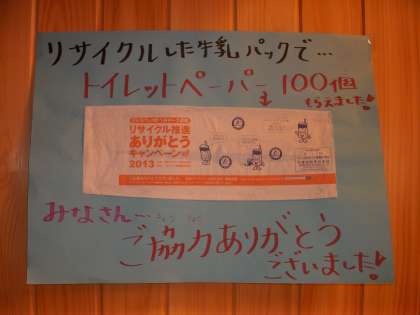 リサイクルした牛乳パックで…
トイレットペーパー100個
もらえました!
リサイクル推進
ありがとう
キャンペーン
2013
みなさん…
きょうりょく
ご協力ありがとう
ございました!